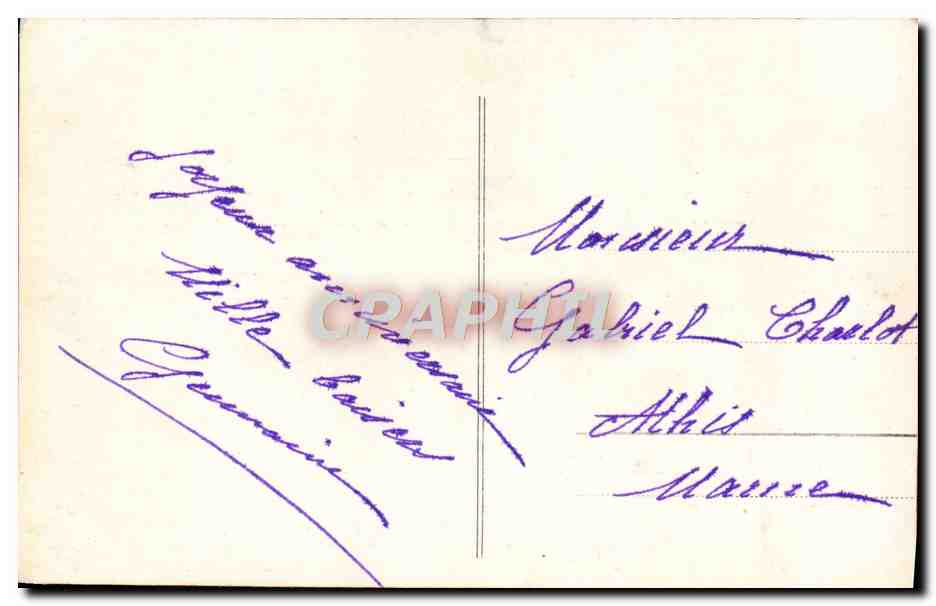 Joyeux anniversaire
Mille baisers
Germaine
Monsieur
Gabriel Charlot
Athis
Marne
CRAPHIL